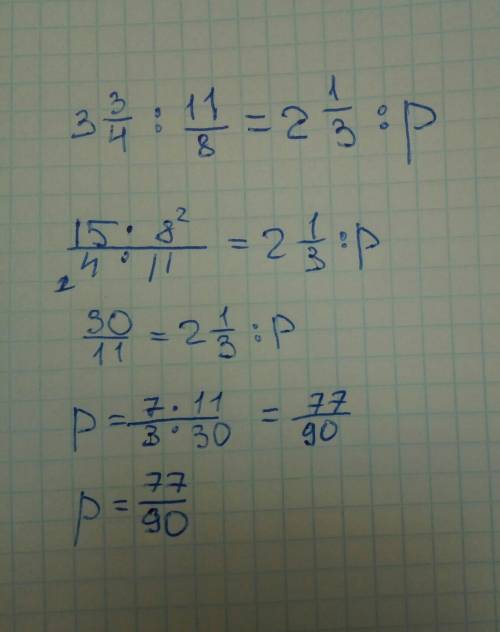 3 3/4 : 11/8 = 2 1/3 : p
15 · 8² / 4 · 11 = 2 1/3 : p
30/11 = 2 1/3 : p
p = 7 · 11 / 3 · 30 = 77/90
p = 77/90